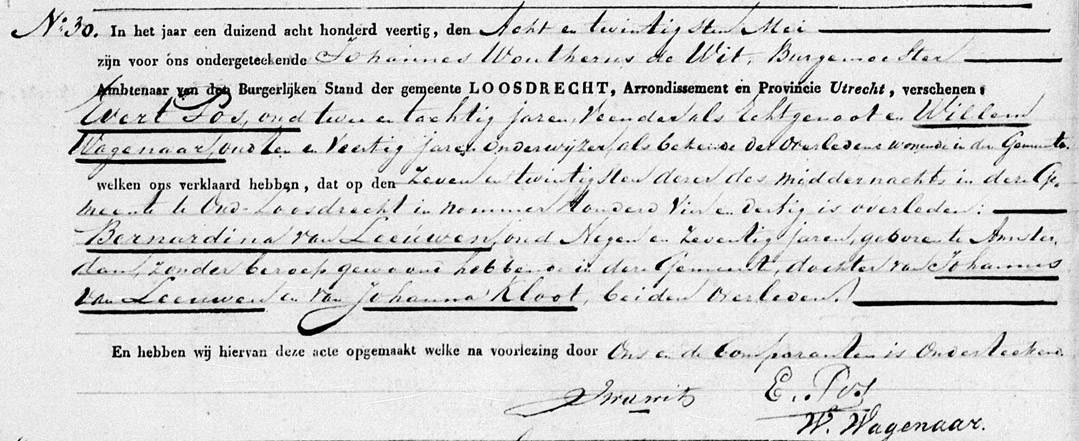 No. 30. In het jaar een duizend acht honderd veertig, den Acht en twintigsten Mei
zijn voor ons ondergeteekende Johannes Woutherus de Wit, Burgemeester
Ambtenaar van den Burgerlijken Stand der gemeente LOOSDRECHT, Arrondissement en Provincie Utrecht, verschenen:
Evert Pos, oud twee en tachtig jaren, Veender als Echtgenoot en Willem
Wagenaar, oud Een en Veertig jaren onderwijzer, als bekende der Overledene wonende in den Gemeente
welken ons verklaard hebben, dat op den Zeven en twintigsten dezer des middernachts in deze Ge-
meente te Oud-Loosdrecht in nommer Honderd Vier en dertig is overleden:
Bernardina van Leeuwen, oud Negen en Zeventig jaren, geboren te Amster
dam, Zonder beroep gewoond hebbende in deze Gemeente, dochter van Johannes
van Leeuwen en van Johanna Kloot, beiden Overleden.
En hebben wij hiervan deze acte opgemaakt welke na voorlezing door Ons en de Comparanten is Onderteekend
JWdeWit E. Pos
W. Wagenaar.